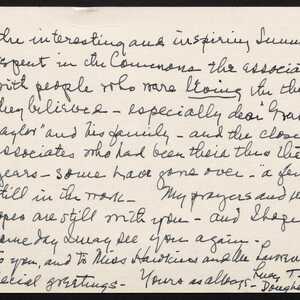 the interesting and inspiring Summ
spent in the Commons the associa
with people who were living the th
they believed - especially dear "Gra
Taylor" and his family - and the close
associates who had been there thru the
years - some have gone over - "a few
still in the work - My prayers and
hopes are still with you - and I hope
some day I may see you again -
to you, and to Miss Hawkins and the
special greetings - Yours as always - T.